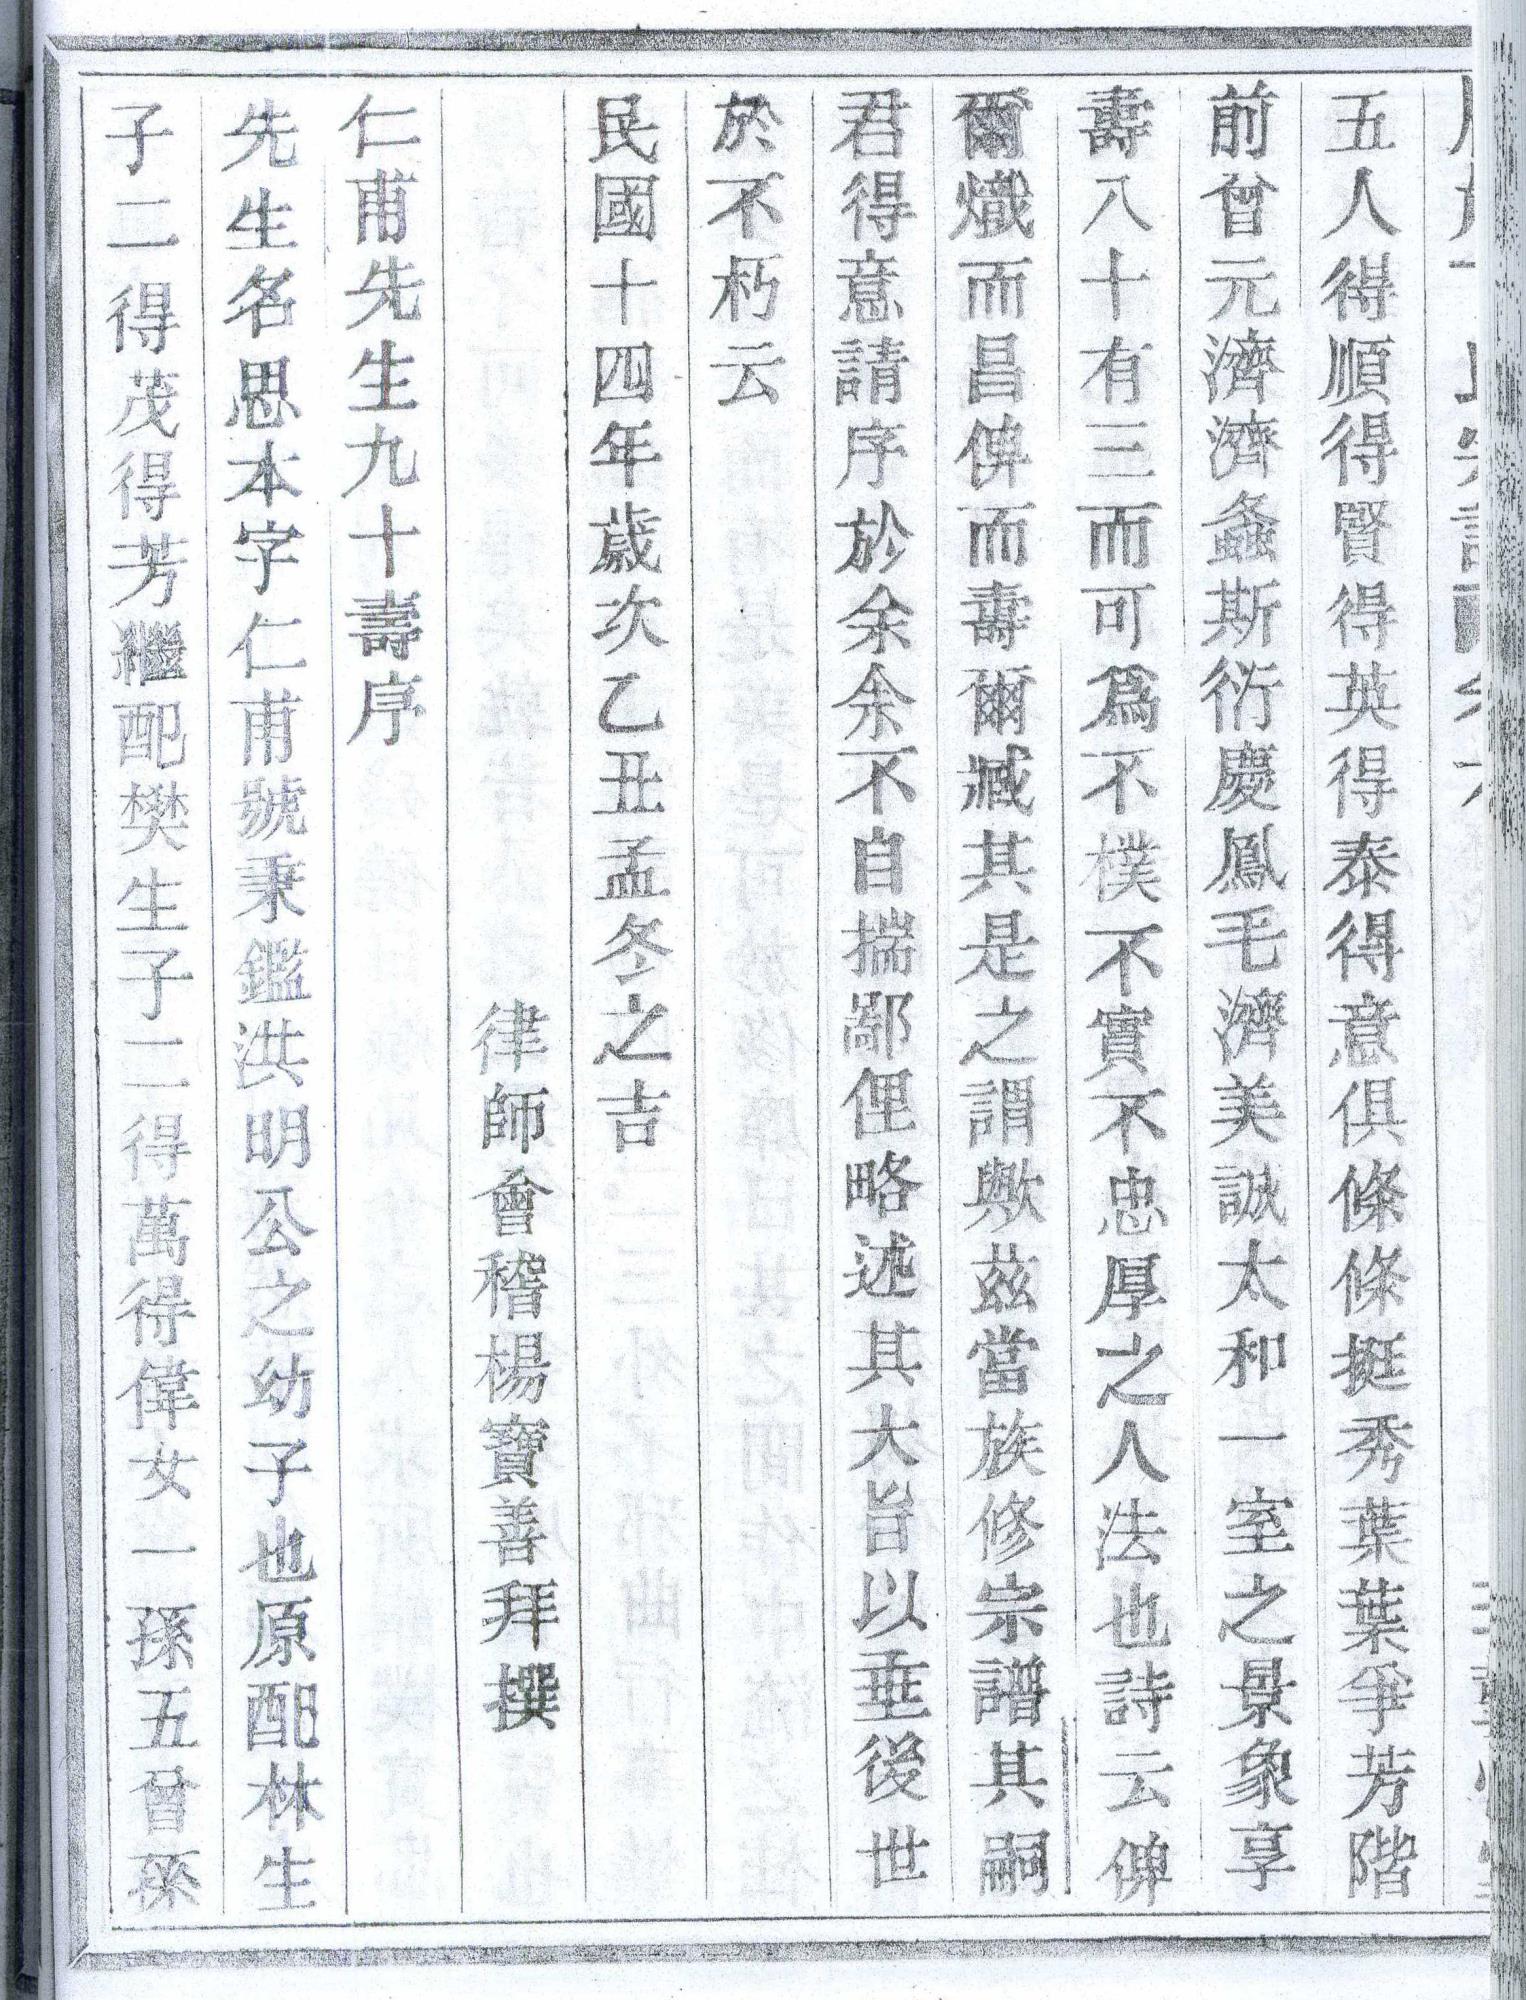 五人得順得賢得英得泰得意俱條條挺秀葉葉爭芳階
前曾元濟濟螽斯衍慶鳳毛濟美誠太和一室之景象享
壽八十有三而可爲不樸不實不忠厚之人法也詩云俾
爾熾而昌俾而壽爾臧其是之謂歟茲當族修宗譜其嗣
君得意請序於余余不自揣鄙俚略述其大旨以垂後世
於不朽云
民國十四年歲次乙丑孟冬之吉
律師會稽楊寶善拜撰
仁甫先生九十壽序
先生名思本字仁甫號秉鑑洪明公之幼子也原配林生
子二得茂得芳繼配樊生子二得萬得偉女一孫五曾孫